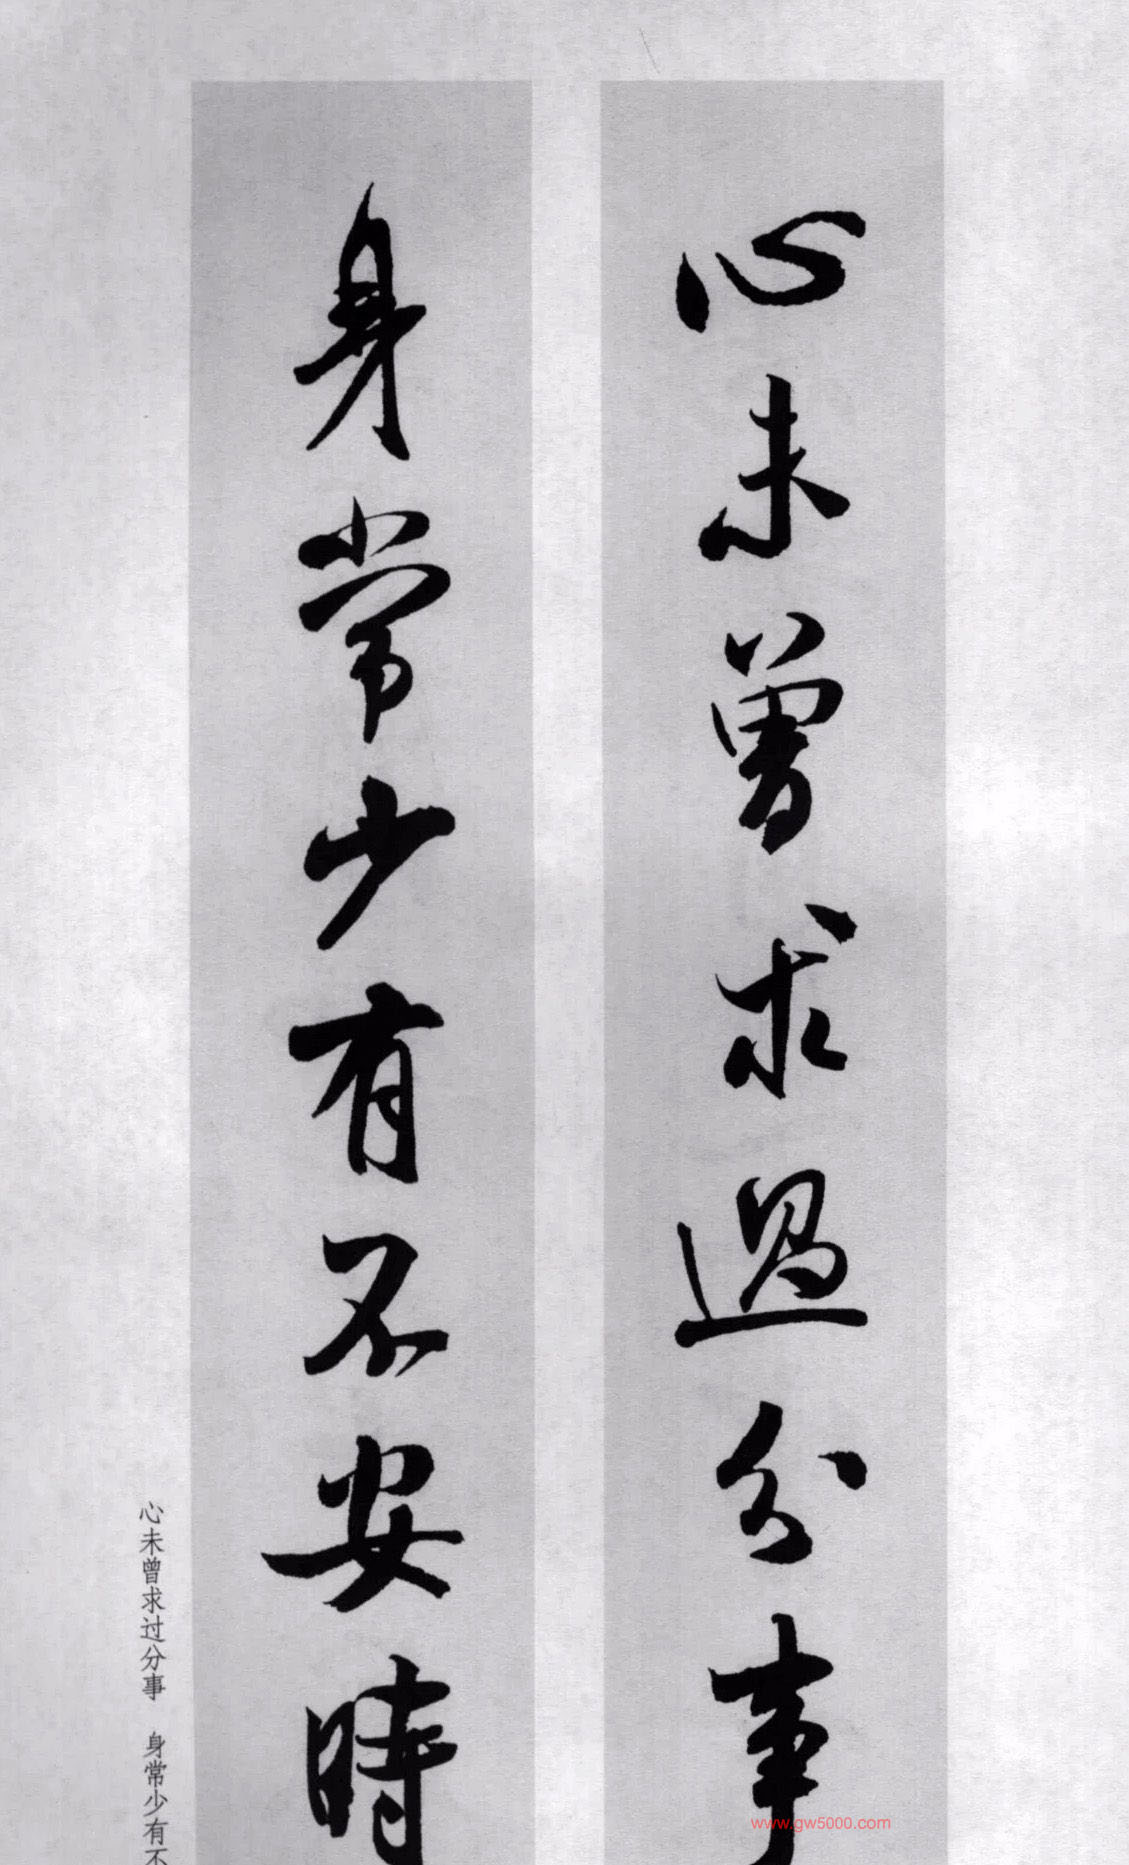 心未曾求過分事
身常少有不安時
心未曾求过分事 身常少有不
www.gw5000.com